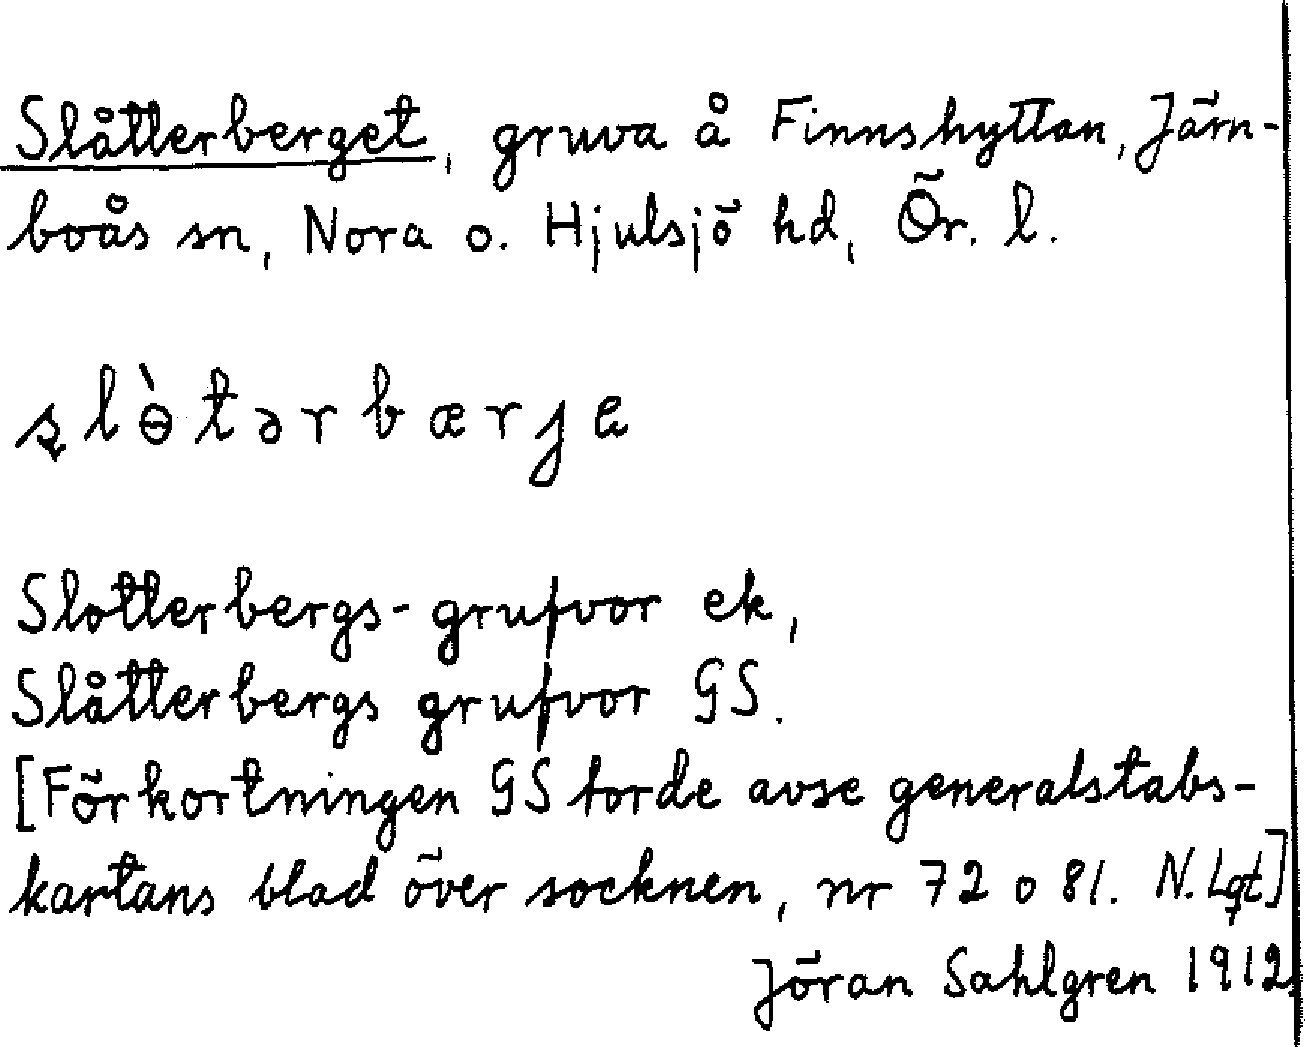 Slåtterberget, gruva å Finnshyttan, Järn-
boås sn, Nora o. Hjulsjö hd, Ör. l.
slɵ̀tərbærje
Slotterbergs-grufvor ek,
Slåtterbergs grufvor GS.
[Förkortningen GS torde avse generalstabs-
kartans blad över socknen, nr 72 o 81. N. Lgt]
Jöran Sahlgren 1912.